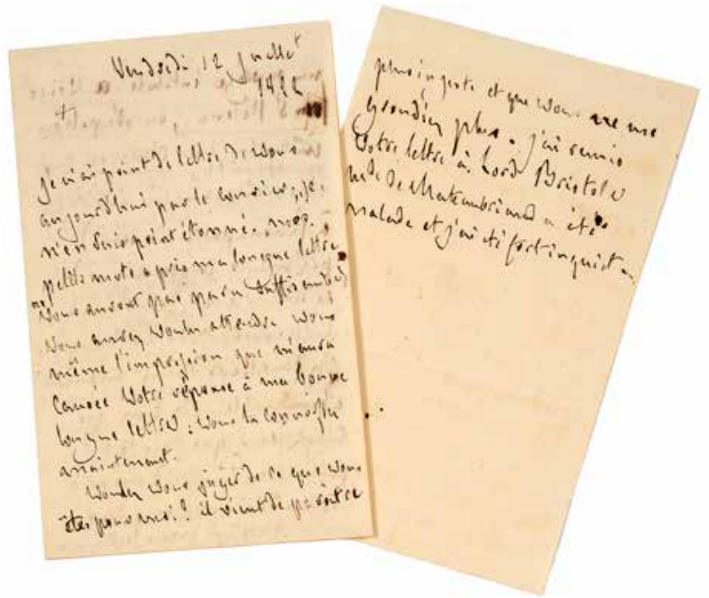 Vendredi 12 Juillet
1822
je n'ai point de lettre de vous
aujourd'hui par le courier; je
n'en suis point étonné. mes
petits mots après ma longue lettre
ne vous auront pas paru suffisants
vous aurez voulu attendre vous
même l'impression que m'aura
causée votre réponse à ma bonne
longue lettre: vous la connoissez
maintenant.
Voulez vous juger de ce que vous
êtes pour moi? il vient de paroitre
plus injuste et que vous ne me
grondiez plus. j'ai remis
votre lettre à Lord Bristol
Mde de Chateaubriand a été
malade et j'ai été fort inquiet